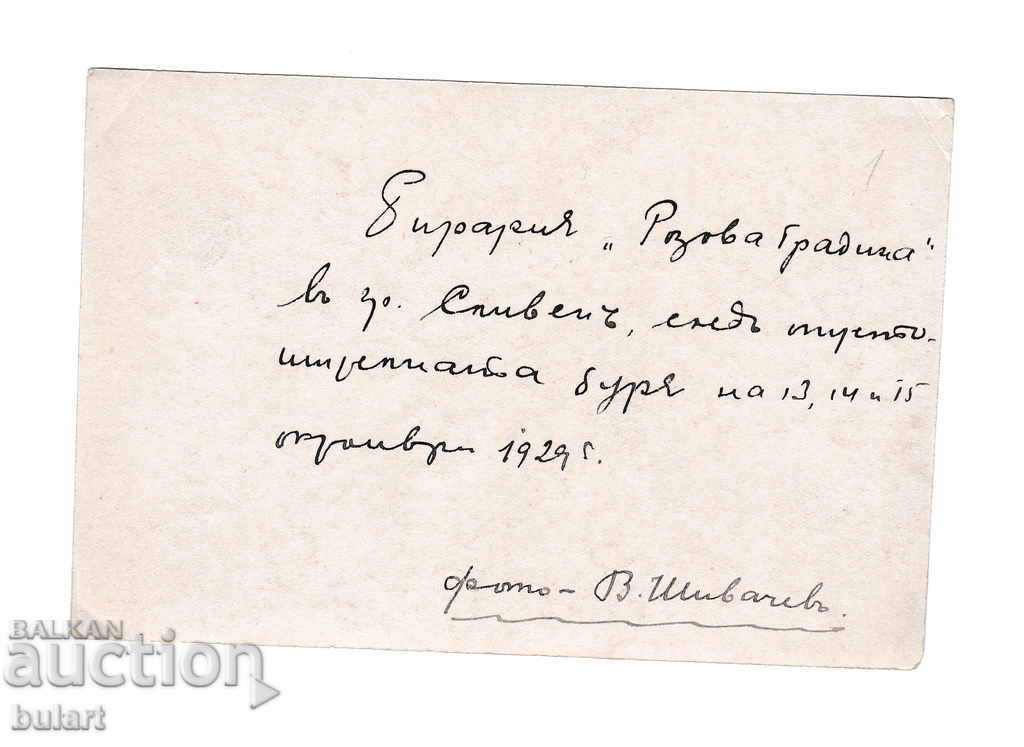 1
Бирария „Розова Градина“
въ гр. Сливенъ, следъ опусто-
шителната буря на 13, 14 и 15
октомври 1929 г.
фото – В. Шивачевъ.
BALKAN
auction
bulart